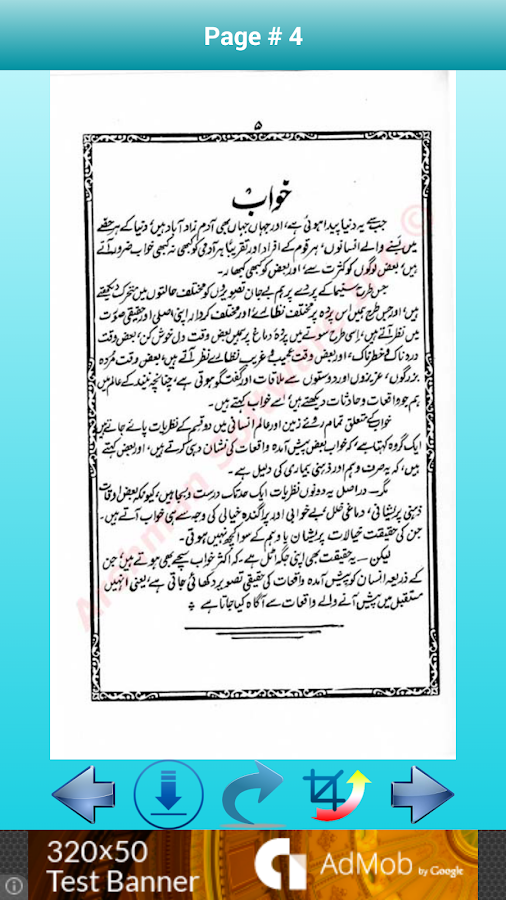 Page # 4
۵
خواب
جب سے یہ دنیا پیدا ہوئی ہے، اور جہاں جہاں بھی آدم زاد آباد ہیں، دنیا کے ہر حصّے
میں بسنے والے انسانوں، ہر قوم کے افراد اور تقریباً ہر آدمی کو کبھی نہ کبھی خواب ضرور آتے
ہیں، بعض لوگوں کو کثرت سے، اور بعض کو کبھی کبھار۔
جس طرح سنیما کے پردے پر ہم بے جان تصویروں کو مختلف حالتوں میں متحرک دیکھتے
ہیں، اور جس طرح ہمیں اس پردہ پر مختلف نظارے اور مختلف کردار اپنی اصلی اور حقیقی صورت
میں نظر آتے ہیں، اسی طرح سوتے میں پردۂ دماغ پر ہمیں بعض وقت دل خوش کن، بعض وقت
دردناک و خطرناک، اور بعض وقت عجیب و غریب نظارے نظر آتے ہیں، بعض وقت مُردہ
بزرگوں، عزیزوں اور دوستوں سے ملاقات اور گفتگو ہوتی ہے، چنانچہ نیند کے عالم میں
ہم جو واقعات و حادثات دیکھتے ہیں، اُسے خواب کہتے ہیں۔
خواب کے متعلق تمام روئے زمین اور عالم انسانی میں دو قسم کے نظریات پائے جاتے ہیں
ایک گروہ کہتا ہے، کہ خواب بعض پیش آمدہ واقعات کی نشان دہی کرتے ہیں، اور بعض کہتے
ہیں، کہ یہ صرف وہم اور ذہنی بیماری کی دلیل ہے۔
مگر — در اصل یہ دونوں نظریات ایک حد تک درست و بجا ہیں، کیونکہ بعض اوقات
ذہنی پریشانی، دماغی خلل، بے خوابی اور پراگندہ خیالی کی وجہ سے ہی خواب آتے ہیں۔
جن کی حقیقت خیالات پریشان یا وہم کے سوا کچھ نہیں ہوتی۔
لیکن — یہ حقیقت بھی اپنی جگہ اٹل ہے۔ کہ اکثر خواب سچے بھی ہوتے ہیں، جن
کے ذریعہ انسان کو پیش آمدہ واقعات کی حقیقی تصویر دکھائی جاتی ہے، یعنی اُنہیں
مستقبل میں پیش آنے والے واقعات سے آگاہ کیا جاتا ہے
320×50
Test Banner
AdMob by Google